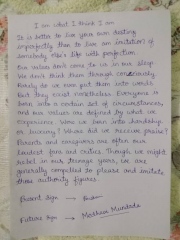 I am what I think I am
It is better to live your own destiny
imperfectly than to live an imitation of
somebody else's life with perfection.
Our values don't come to us in our sleep.
We don't think them through consciously.
Rarely do we ever put them into words.
But they exist nonetheless. Everyone is
born into a certain set of circumstances,
and our values are defined by what we
experience. Were we born into hardship
or luxury? Where did we receive praise?
Parents and caregivers are often our
loudest fans and critics. Though we might
rebel in our teenage years, we are
generally compelled to please and imitate
those authority figures.
Present Sign →
Future Sign → Mundada